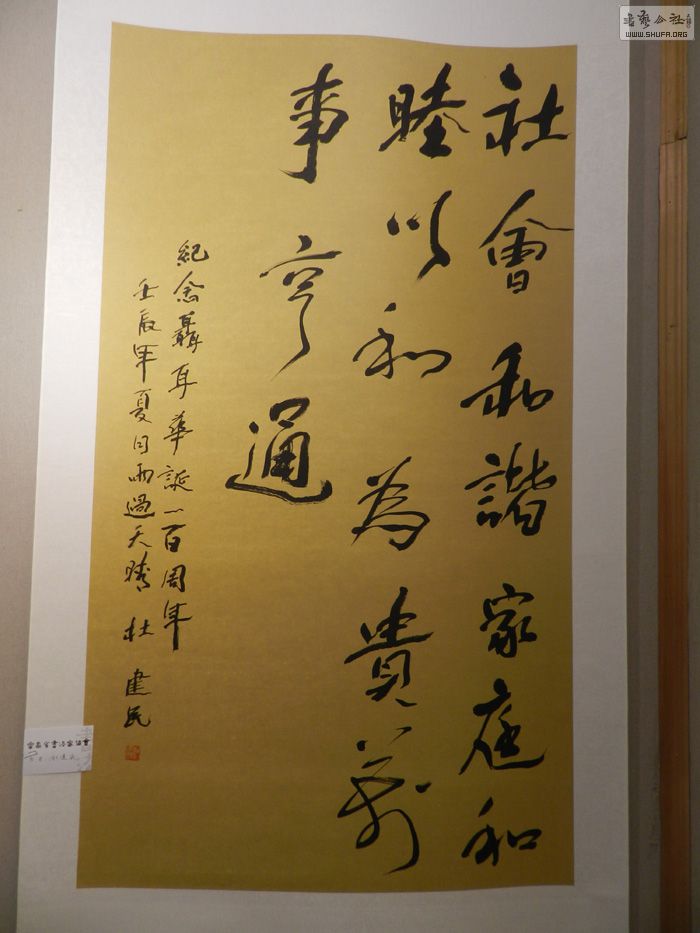 社會和諧家庭和
睦以和為貴萬
事亨通
紀念聶耳華誕一百周年
壬辰年夏日雨過天晴 杜建民
WWW.SHUFA.ORG